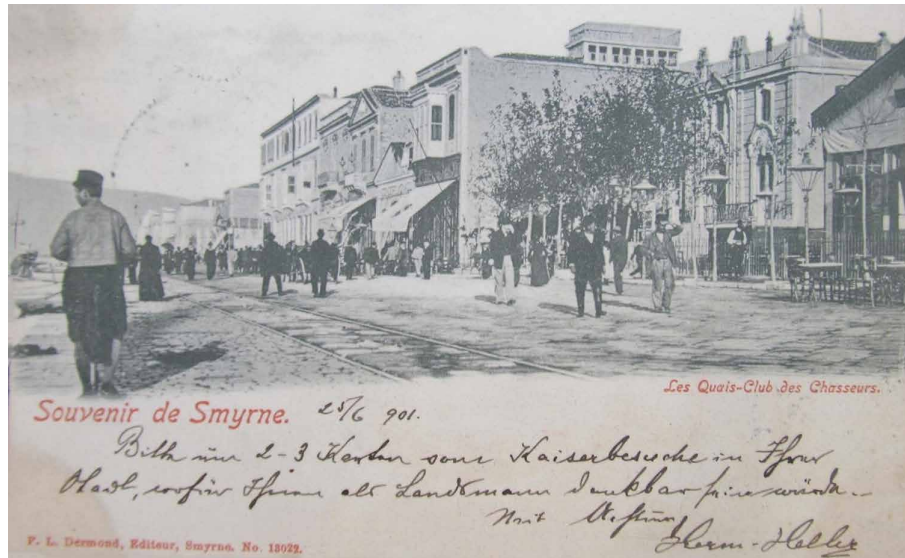 Les Quais-Club des Chasseurs.
Souvenir de Smyrne. 25/6 901.
Bitte um 2-3 Karten vom Kaiserbesuche in Ihrer
Stadt, wofür Ihnen als Landsmann dankbar sein würde.
Mit Achtung
Herm. Heller
F. L. Dermond, Editeur, Smyrne. No. 13029.